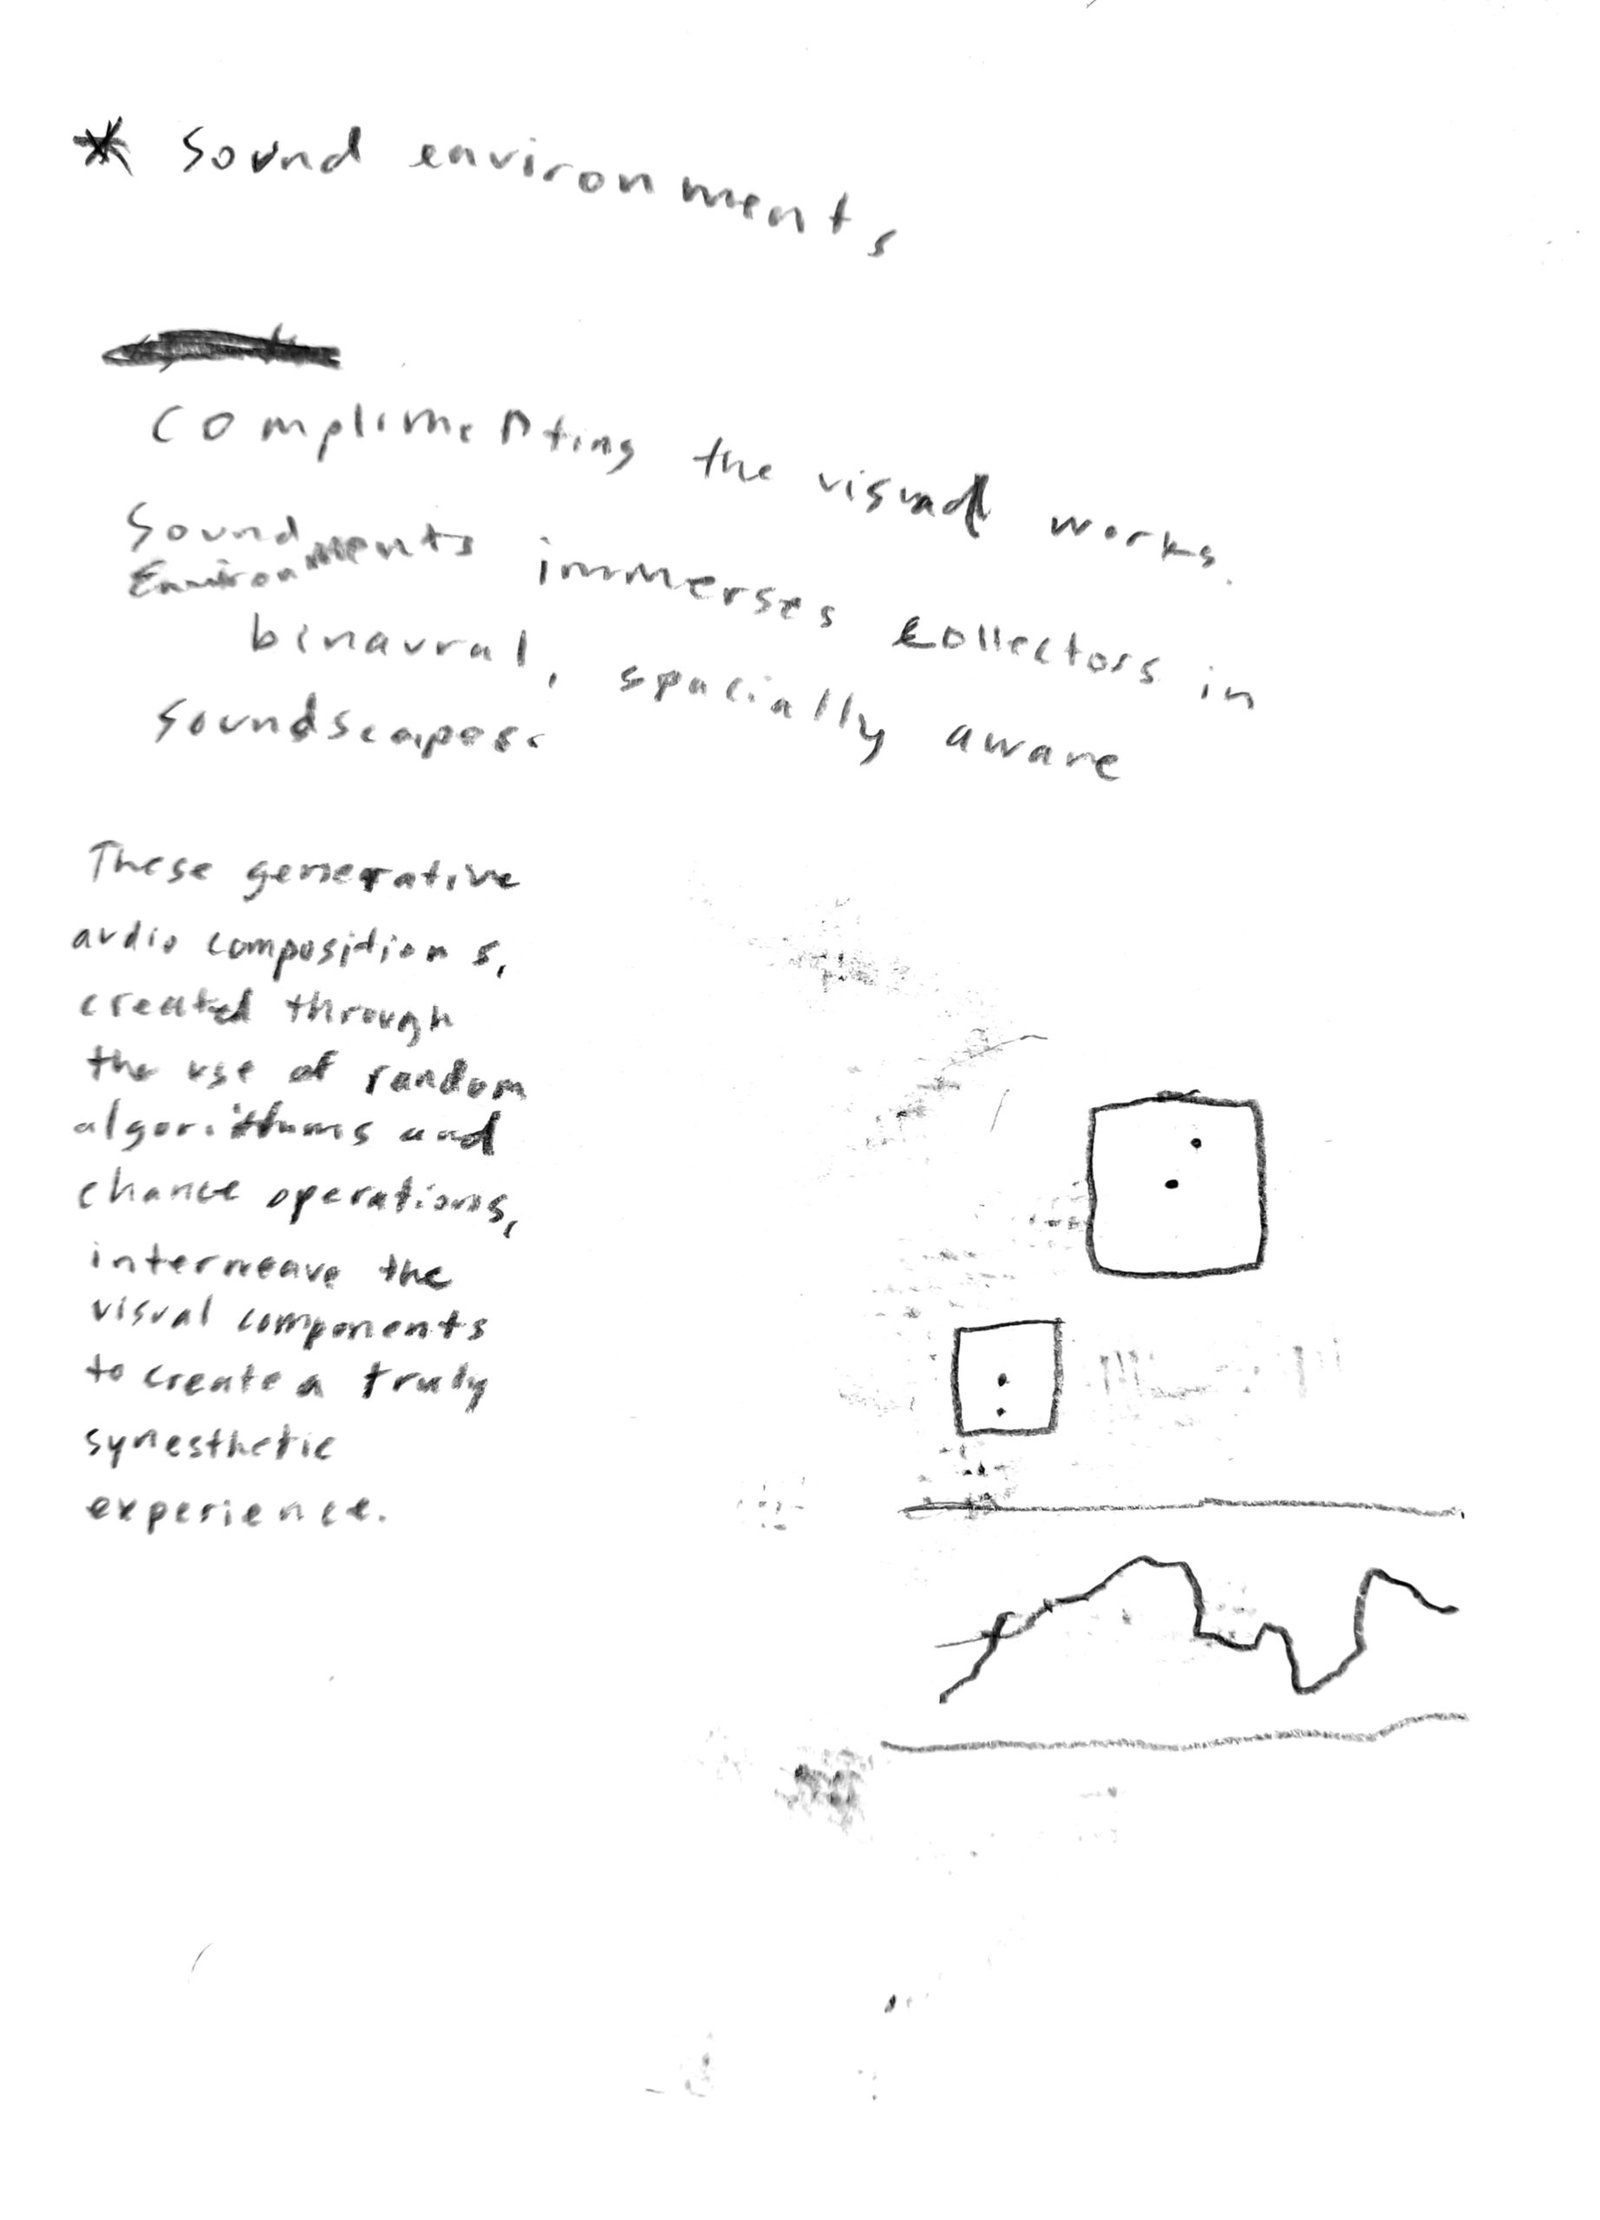 * Sound environments
complimenting the visual works.
Sound
Environments immerses collectors in
binaural, spacially aware
soundscapes.
These generative
audio compositions,
created through
the use of random
algorithms and
chance operations,
interweave the
visual components
to create a truly
synesthetic
experience.